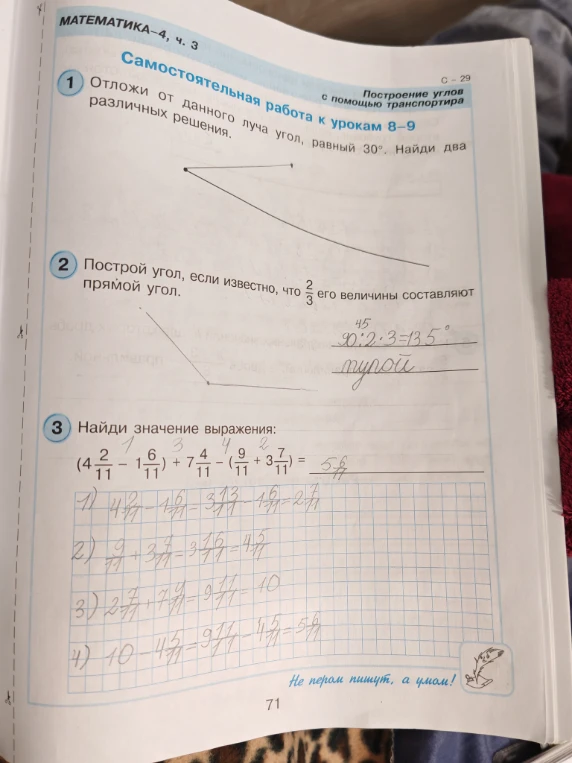 МАТЕМАТИКА–4, ч. 3
С – 29
Самостоятельная работа к урокам 8–9
Построение углов
с помощью транспортира
1 Отложи от данного луча угол, равный 30°. Найди два
различных решения.
2 Построй угол, если известно, что 2/3 его величины составляют
прямой угол.
45
90:2·3=135°
тупой
3 Найди значение выражения:
1 3 4 2
(4 2/11 – 1 6/11) + 7 4/11 – (9/11 + 3 7/11) = 5 6/11
1) 4 2/11 – 1 6/11 = 3 13/11 – 1 6/11 = 2 7/11
2) 9/11 + 3 7/11 = 3 16/11 = 4 5/11
3) 2 7/11 + 7 4/11 = 9 11/11 = 10
4) 10 – 4 5/11 = 9 11/11 – 4 5/11 = 5 6/11
Не пером пишут, а умом!
71